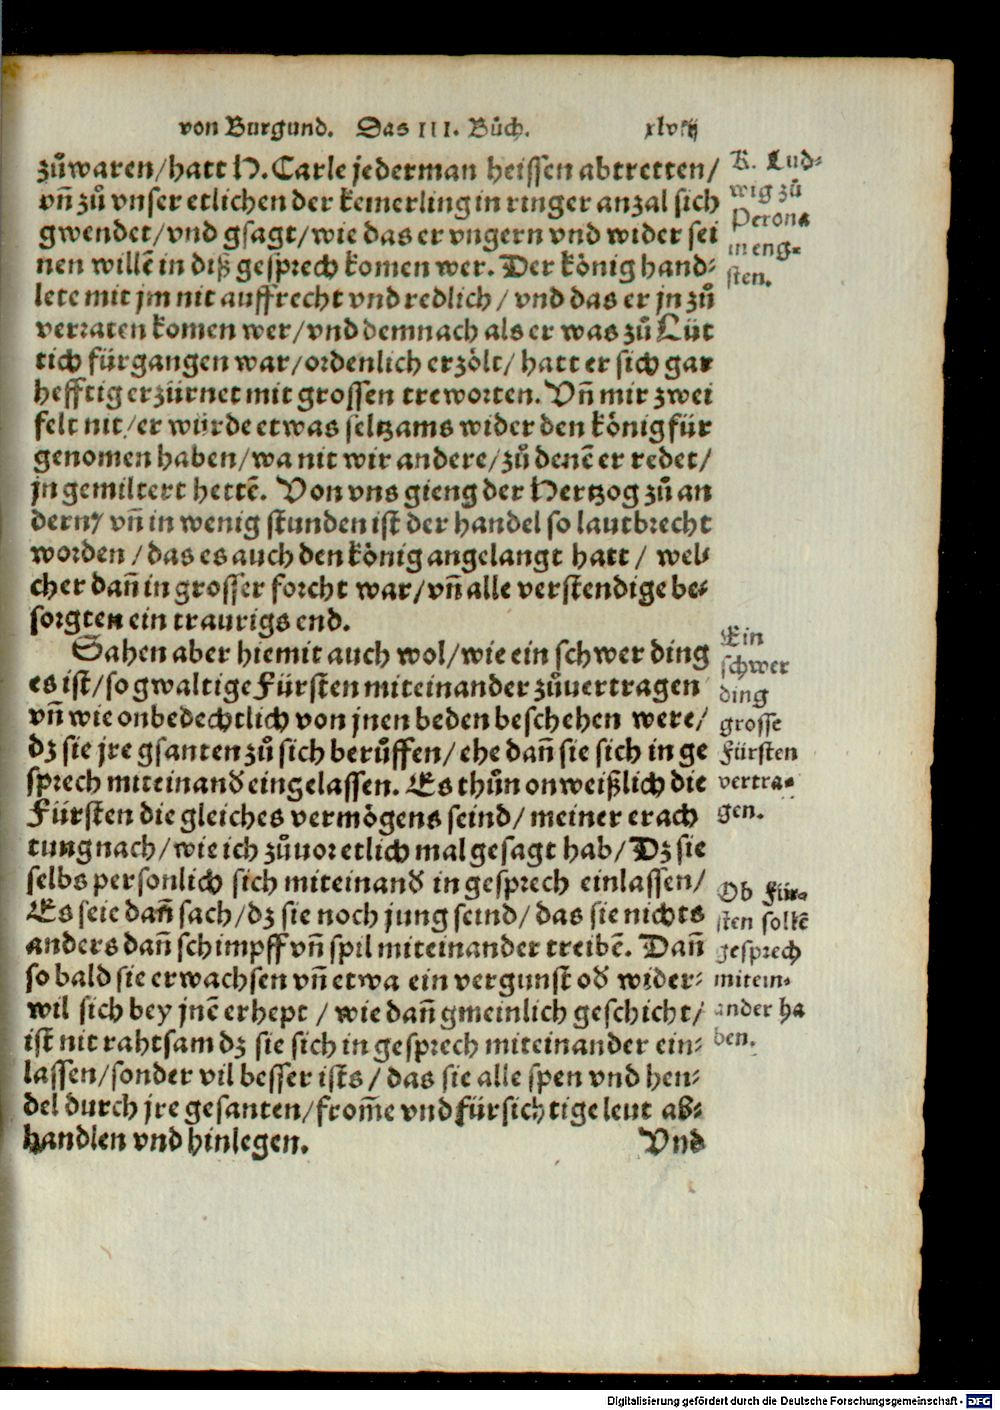 von Burgund. Das III. Bůch. xlviij
zůwaren/hatt H. Carle jederman heissen abtretten/
vñ zů vnser etlichen der kemerling in ringer anzal sich
gwendet/vnd gsagt/wie das er vngern vnd wider sei
nen willē in diß gesprech komen wer. Der könig hand-
lete mit jm nit auffrecht vnd redlich/vnd das er jn zů
verraten komen wer/vnd demnach als er was zů Lüt
tich fürgangen war/ordenlich erzölt/hatt er sich gar
hefftig erzürnet mit grossen treworten. Vñ mir zwei
felt nit/er würde etwas seltzams wider den könig für
genomen haben/wa nit wir andere/zů denē er redet/
jn gemiltert hettē. Von vns gieng der Hertzog zů an
dern/ vñ in wenig stunden ist der handel so lautbrecht
worden/das es auch den könig angelangt hatt/ wel-
cher dañ in grosser forcht war/vñ alle verstendige be-
sorgten ein traurigs end.
Sahen aber hiemit auch wol/wie ein schwer ding
es ist/so gwaltige Fürsten miteinander zůuertragen
vñ wie onbedechtlich von jnen beden beschehen were/
dz sie jre gsanten zů sich berůffen/ehe dañ sie sich in ge
sprech miteinand eingelassen. Es thůn onweißlich die
Fürsten die gleiches vermögens seind/meiner erach
tung nach/wie ich zůuor etlich mal gesagt hab/Dz sie
selbs personlich sich miteinand in gesprech einlassen/
Es seie dañ sach/dz sie noch jung seind/das sie nichts
anders dañ schimpff vñ spil miteinander treibē. Dañ
so bald sie erwachsen vñ etwa ein vergunst od wider-
wil sich bey jnē erhept/wie dañ gmeinlich geschicht/
ist nit rahtsam dz sie sich in gesprech miteinander ein-
lassen/sonder vil besser ists/das sie alle spen vnd hen-
del durch jre gesanten/from̄e vnd fürsichtige leut ab-
handlen vnd hinlegen. Vnd
K. Lud-
wig zů
Perona
in eng-
sten.
Ein
schwer
ding
grosse
Fürsten
vertra-
gen.
Ob Für-
sten sollē
gesprech
mitein-
ander ha
ben.
Digitalisierung gefördert durch die Deutsche Forschungsgemeinschaft - DFG